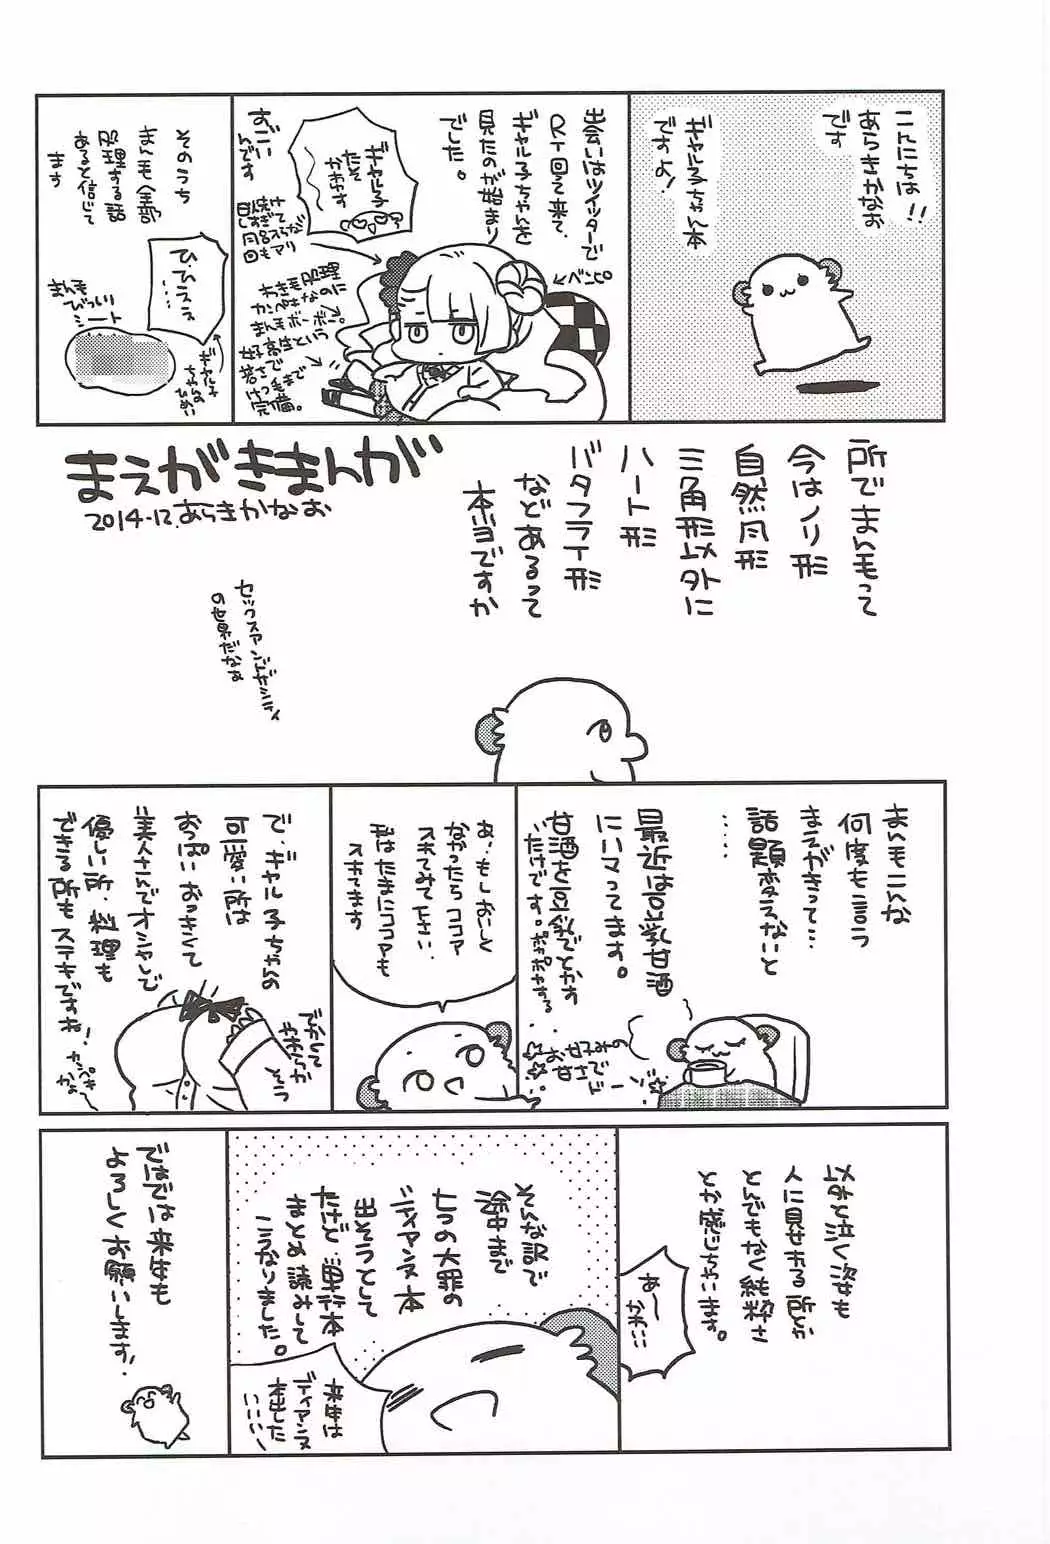 こんにちは!!
あらきかなお
です
ギャル子ちゃん本
ですよ!
出会いはツイッターで
RT回って来て、
ギャル子ちゃんを
見たのが始まり
でした。
←ベンピ
ギャル子
たんて
かわヤす
すごい
んです
わき毛処理
カンペキなのに
まん毛ボーボー。
女子高生という
若さで
けつ毛まで
完備。
そのうち
まん毛全部
処理する話
あると信じて
ます
ひ、ひええ
……
まん毛
びっしり
シート
ギャル子
ちゃんの
ひめい
まえがきまんが
2014.12.あらきかなお
所でまん毛って
今はノリ形
自然月形
三角形以外に
ハート形
バタフライ形
などあるって
本当ですか
セックスアンドザシティ
の世界だなぁ
まん毛こんな
何度も言う
まえがきって…
話題変えないと
……
最近は豆乳甘酒
にハマってます。
甘酒を豆乳でとかす
だけです。ポカポカする
お好みの
お甘さでドーゾ☆
あ、もしおいしく
なかったらココア
入れてみて下さい
私はたまにココアも
入れてます
で、ギャル子ちゃんの
可愛い所は
おっぱいおっきくて
美人さんでオシャレで
優しい所、料理も
できる所もステキですね!
カンペキ
かよ
でかくて
やわらか
そう
意外と泣く姿も
人に見せれる所とか
とんでもなく純粋さ
とか感じちゃいます。
あ〜
かわいい
そんな訳で
途中まで
七つの大罪の
ディアンヌ本
出そうとして
たけど、単行本
まとめ読みして
こうなりました。
来年は
ディアンヌ
本出したい
いいい
ではでは来年も
よろしくお願いします!